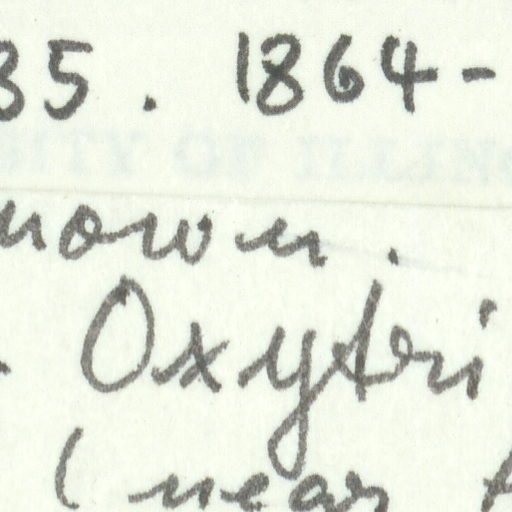 35. 1864-
SITY OF ILLINO
nown.
Oxytri
(near